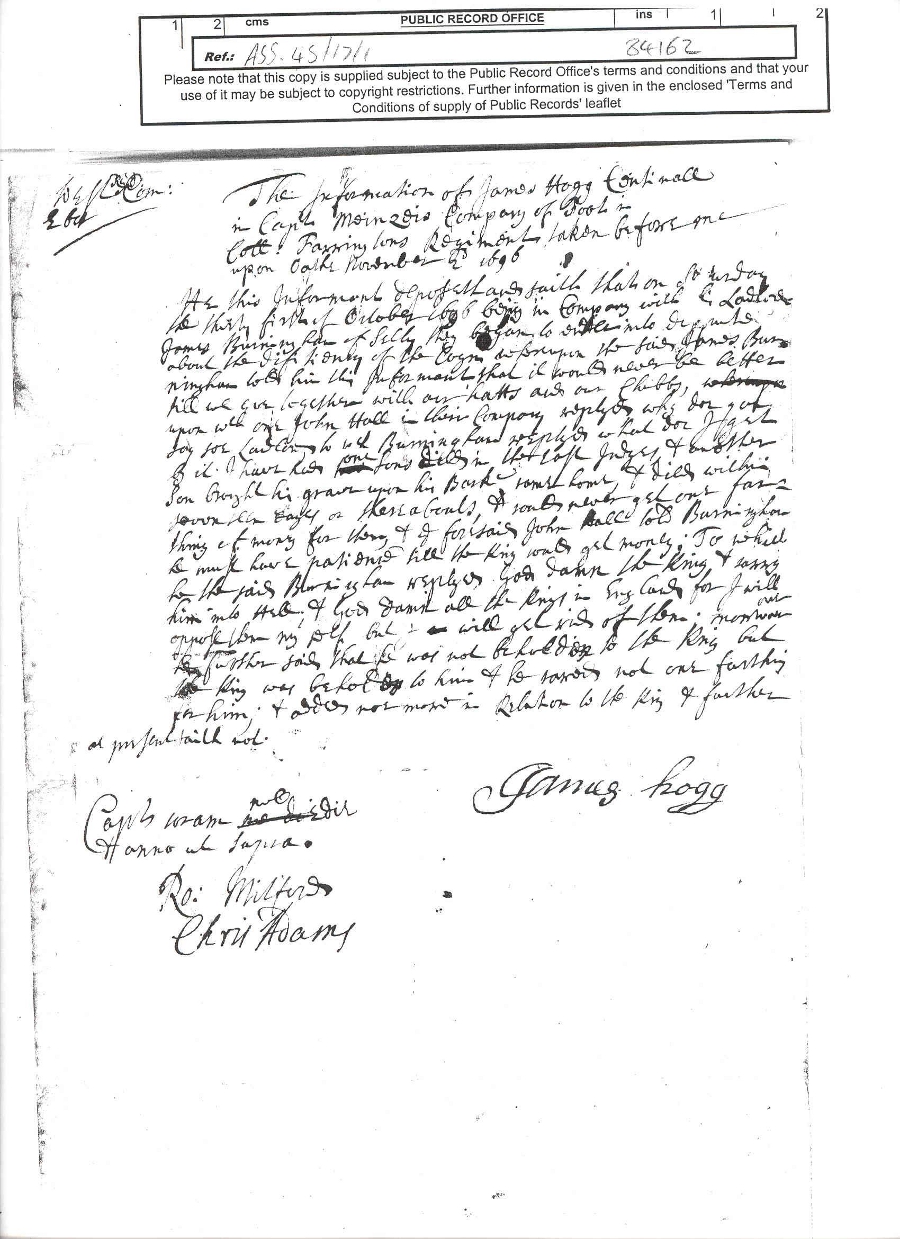 1 2 cms PUBLIC RECORD OFFICE ins 1 2
Ref.: ASS. 45/17/1 84162
Please note that this copy is supplied subject to the Public Record Office's terms and conditions and that your
use of it may be subject to copyright restrictions. Further information is given in the enclosed 'Terms and
Conditions of supply of Public Records' leaflet
Com:
Ebor
The Information of James Hogg Centinall
in Capt: Meinzeis Company of Foot in
Coll: Farringtons Regiment taken before me
upon Oathe November 2d 1696
He this Informant deposeth and saith that on Saturday
the thirty first of October 1696 being in Company with his Landlord
James Burningham of Selby they began to enter into dispute
about the of the Coyn whereupon the said James Bur
ningham told him this Informant that it would never be better
till we get together with our hatts and our Clubbs,
upon wch one John Hall in their Company replyed why doe you
say soe Landlord to wch Burningham replyed what doe I gett
by it. I have had one sons died in the last & another
Son brought his grave upon his Back home, & died within
seventeen dayes or thereabouts, & could never get one far=
thing of money for them & ye foresaid John Hall told Burningham
he must have patience till the King could get money: To which
he the said Burningham replyed God damn the King & carry
him into Hell, & God damn all the Kings in England for I will
oppose them my self but I will get rid of them: moreover
he further said that he was not beholden to the King but
the King was beholden to him & he cared not one farthing
for him; & added not more in Relation to the King & further
at present saith not.
James hogg
Capt
Anno ut supra.
Ro: Mitford
Chris Adams